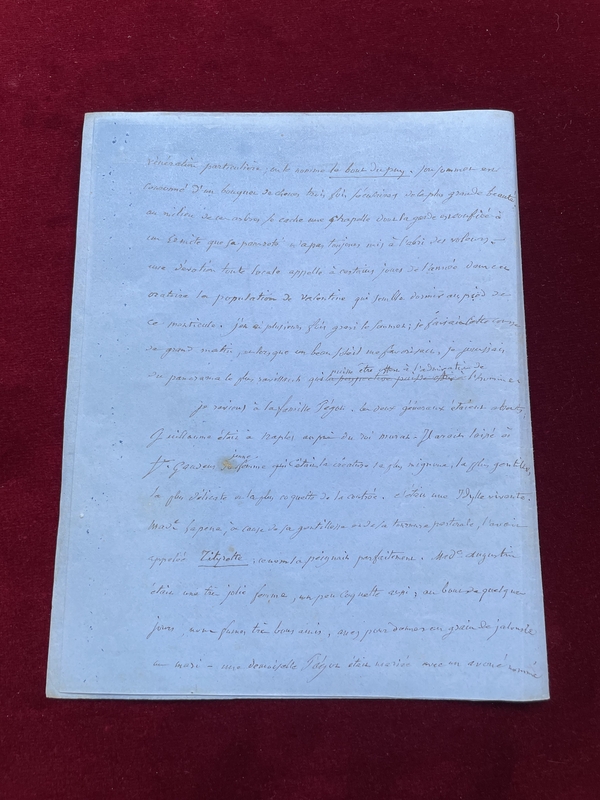 vénération particulière, on le nomme le bout du puy. Son sommet est
couronné d'un bouquet de chênes trois fois séculaires de la plus grande beauté
au milieu de ces arbres se cache une chapelle dont la garde est confiée à
un Ermite que sa pauvreté n'a pas toujours mis à l'abri des voleurs.
une dévotion toute locale appelle à certains jours de l'année dans cet
oratoire la population de valentine qui semble dormir au pied de
ce monticule. j'en ai plusieurs fois gravi le sommet; je faisais cette course
de grand matin, et lorsque un beau soleil me favorisait, je jouissais
du panorama le plus ravissant qui puisse être offert à l'admiration de l'homme
je reviens à la famille Pégot. les deux généraux étaient absents,
Guillaume était à naples auprès du roi murat. Il avait laissé à
St. Gaudens sa jeune femme qui était la créature la plus mignonne, la plus gentille,
la plus délicate et la plus coquette de la contrée. c'était une Idylle vivante.
Made. Lapene, à cause de sa gentillesse et de sa tournure pastorale, l'avait
appelée Tityrette; ce nom la peignait parfaitement. Made. augustin
était une très jolie femme, un peu coquette aussi; au bout de quelques
jours, nous fumes très bons amis, avec pourtant un grain de jalousie
du mari – une demoiselle Pégot était mariée avec un avocat nommé